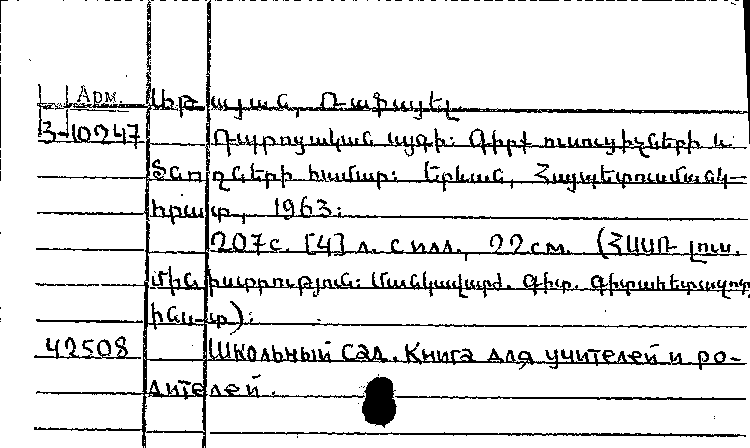 Арм.
Աթայան, Ռաֆայել
3-10247 Դպրոցական այգի։ Գիրք ուսուցիչների և
ծնողների համար։ Երևան, Հայպետուսմանկ-
հրատ, 1963։
207с. [4] л. с илл., 22см. (ՀՍՍՌ լուս.
մինիստրություն։ Մանկավարժ. գիտ. գիտահետազոտ
ինս-տ)։
42508 Школьный сад. Книга для учителей и ро-
дителей.